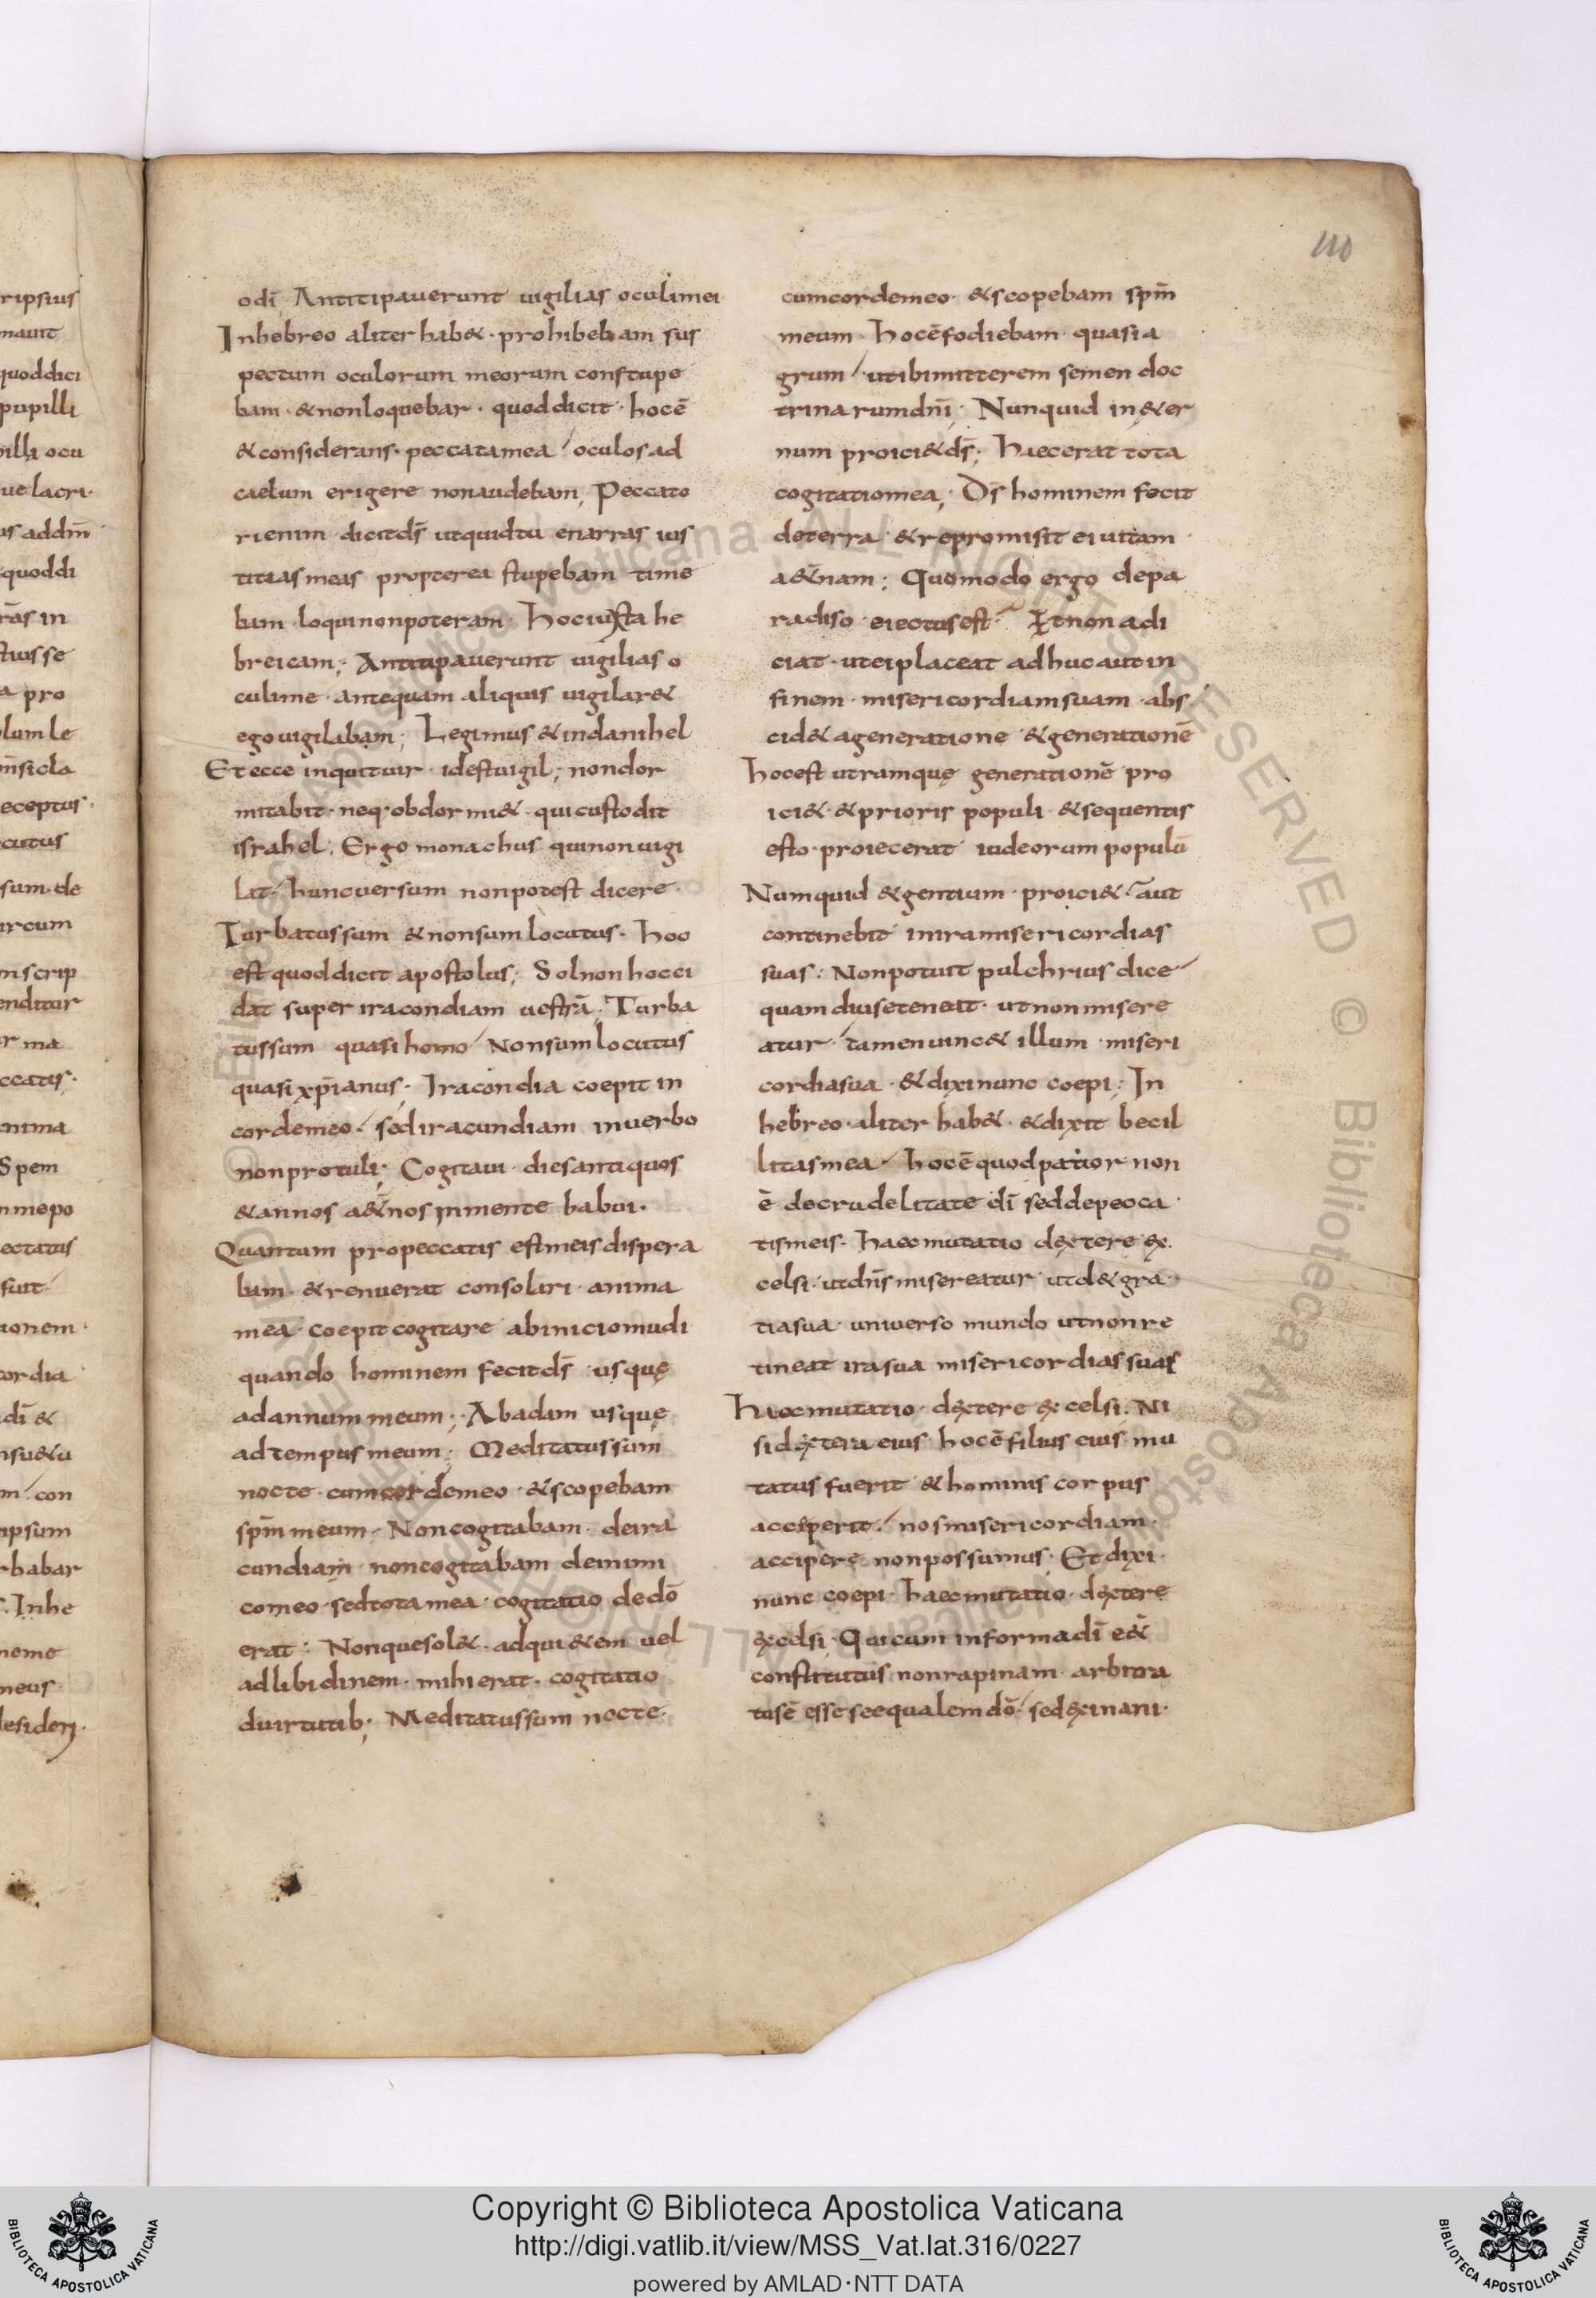 110
ripsius
mauit
quoddici
pupilli
pilli ocu
ue lacri·
us addm̄
quoddi
r̄as in
stuis se
a pro
olum le
m̄sicla
eceptus·
cutus
sum·de
ircum
m scrip
enditur
r ma
ccatis·
anima
Spem
n mepo
ectatus
fuit
ionem·
cordia
dī &
nsu&u
m con
ipsum
rhabar
Inhe
neme
neus
desideri·
odī Antitipauerunt uigilias oculimei
Inhebreo aliter hab&· prohibebam sus
pectum oculorum meorum constupe
bam· &nonloquebar· quoddicit· hocē
&considerans· peccatamea oculosad
caelum erigere nonaudebam; Peccato
rienim dicitds̄ utquidtu enarras ius
titiasmeas propterea stupebam time
bam· loquinonpoteram· hociuxta he
breicam; Antitipauerunt uigilias o
culime· antequam aliquis uigilar&
egouigilabam; Legimus &indanihel
Etecce inquituir· idestuigil; nondor
mitabit· neq·obdormi&· quicustodit
israhel; Ergo monachus quinonuigi
lat huncuersum nonpotest dicere·
Turbatussum &nonsumlocutus· hoc
est quoddicit apostolus; Solnonhocci
dat super iracondiam uestrā; Turba
tussum quasihomo Nonsumlocutus
quasi xp̄ianus; Iracondia coepit in
cordemeo· sediracundiam inuerbo
nonprotuli; Cogitaui· diesantiquos
&annos a&̄nos inmente habui·
Quantum propeccatis estmeisdispera
bam· &renuerat consolari· anima
mea· coepitcogitare abiniciomudi
quando hominem fecitds̄ usquę
adannummeum; Abadam usquę
adtempusmeum; Meditatussum
nocte· cumcordemeo· &scopebam
spm̄meum· Noncogitabam· deira
cundiam noncogitabam deinimi
comeo· sedtotamea· cogitatio dedō
erat: Nonquesol&· adqui&em uel
adlibidinem· mihierat· cogitatio
duirtutib; Meditatussum nocte·
cumcordemeo· &scopebam spm̄
meum· hocēfodiebam· quasia
grum utibimitterem semen doc
trinarumdnī; Nunquid in&er
num proici&ds̄; haecerat tota
cogitatiomea; Ds̄ hominem fecit
deterra· &repromisit ei uitam·
a&̄nam; Quomodo ergo depa
radiso eiectusest· Etnonadi
ciat· uteiplaceat adhucautin
finem· misericordiamsuam· abs
cid& ageneratione &generationē
hocest utramquę generationē pro
ici& &prioris populi &sequentis
esto·proiecerat iudeorum populū
Numquid &gentium· proici& aut
continebit inira misericordias
suas: Nonpotuit pulchrius dice
quam diuseteneat· utnonmisere
atur· tamenuinc& illum miseri
cordiasua· &dixinunc coepi; In
hebreo·aliter hab&· &dixit becil
litasmea· hocēquodpatior non
ē decrudelitate dī seddepecca·
tismeis· haecmutatio dextere ex·
celsi· utdn̄smisereatur· utd&gra·
tiasua· uniuerso mundo utnonre
tineat irasua misericordiassuas
haecmutatio· dextere excelsi· Ni
sidextera eius· hocēfilius eius· mu
tatus fuerit &hominis corpus
acciperit· nosmisericordiam·
accipere nonpossumus· Etdixi·
nunc coepi· haecmutatio· dextere
excelsi· Quicum informadī e&̄
constitutus nonrapinam· arbitra
tusē esseseequalemdō sedexinani·
Copyright © Biblioteca Apostolica Vaticana
http://digi.vatlib.it/view/MSS_Vat.lat.316/0227
powered by AMLAD·NTT DATA
BIBLIOTECA APOSTOLICA VATICANA
BIBLIOTECA APOSTOLICA VATICANA